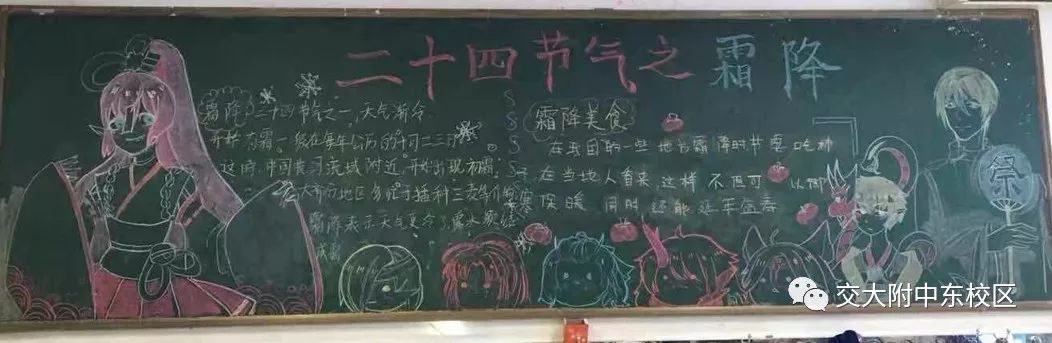 二十四节气之霜降
霜降,二十四节气之一,天气渐冷
开始有霜。一般在每年公历的十月二三日
这时,中国黄河流域附近,开始出现初霜
大部分地区多忙于播种三麦等作物
霜降表示天气更冷了露水凝结
成霜
霜降美食
在我国的一些地方霜降时节要吃柿
子,在当地人看来,这样不但可以御
寒保暖 同时还能延年益寿
祭
交大附中东校区